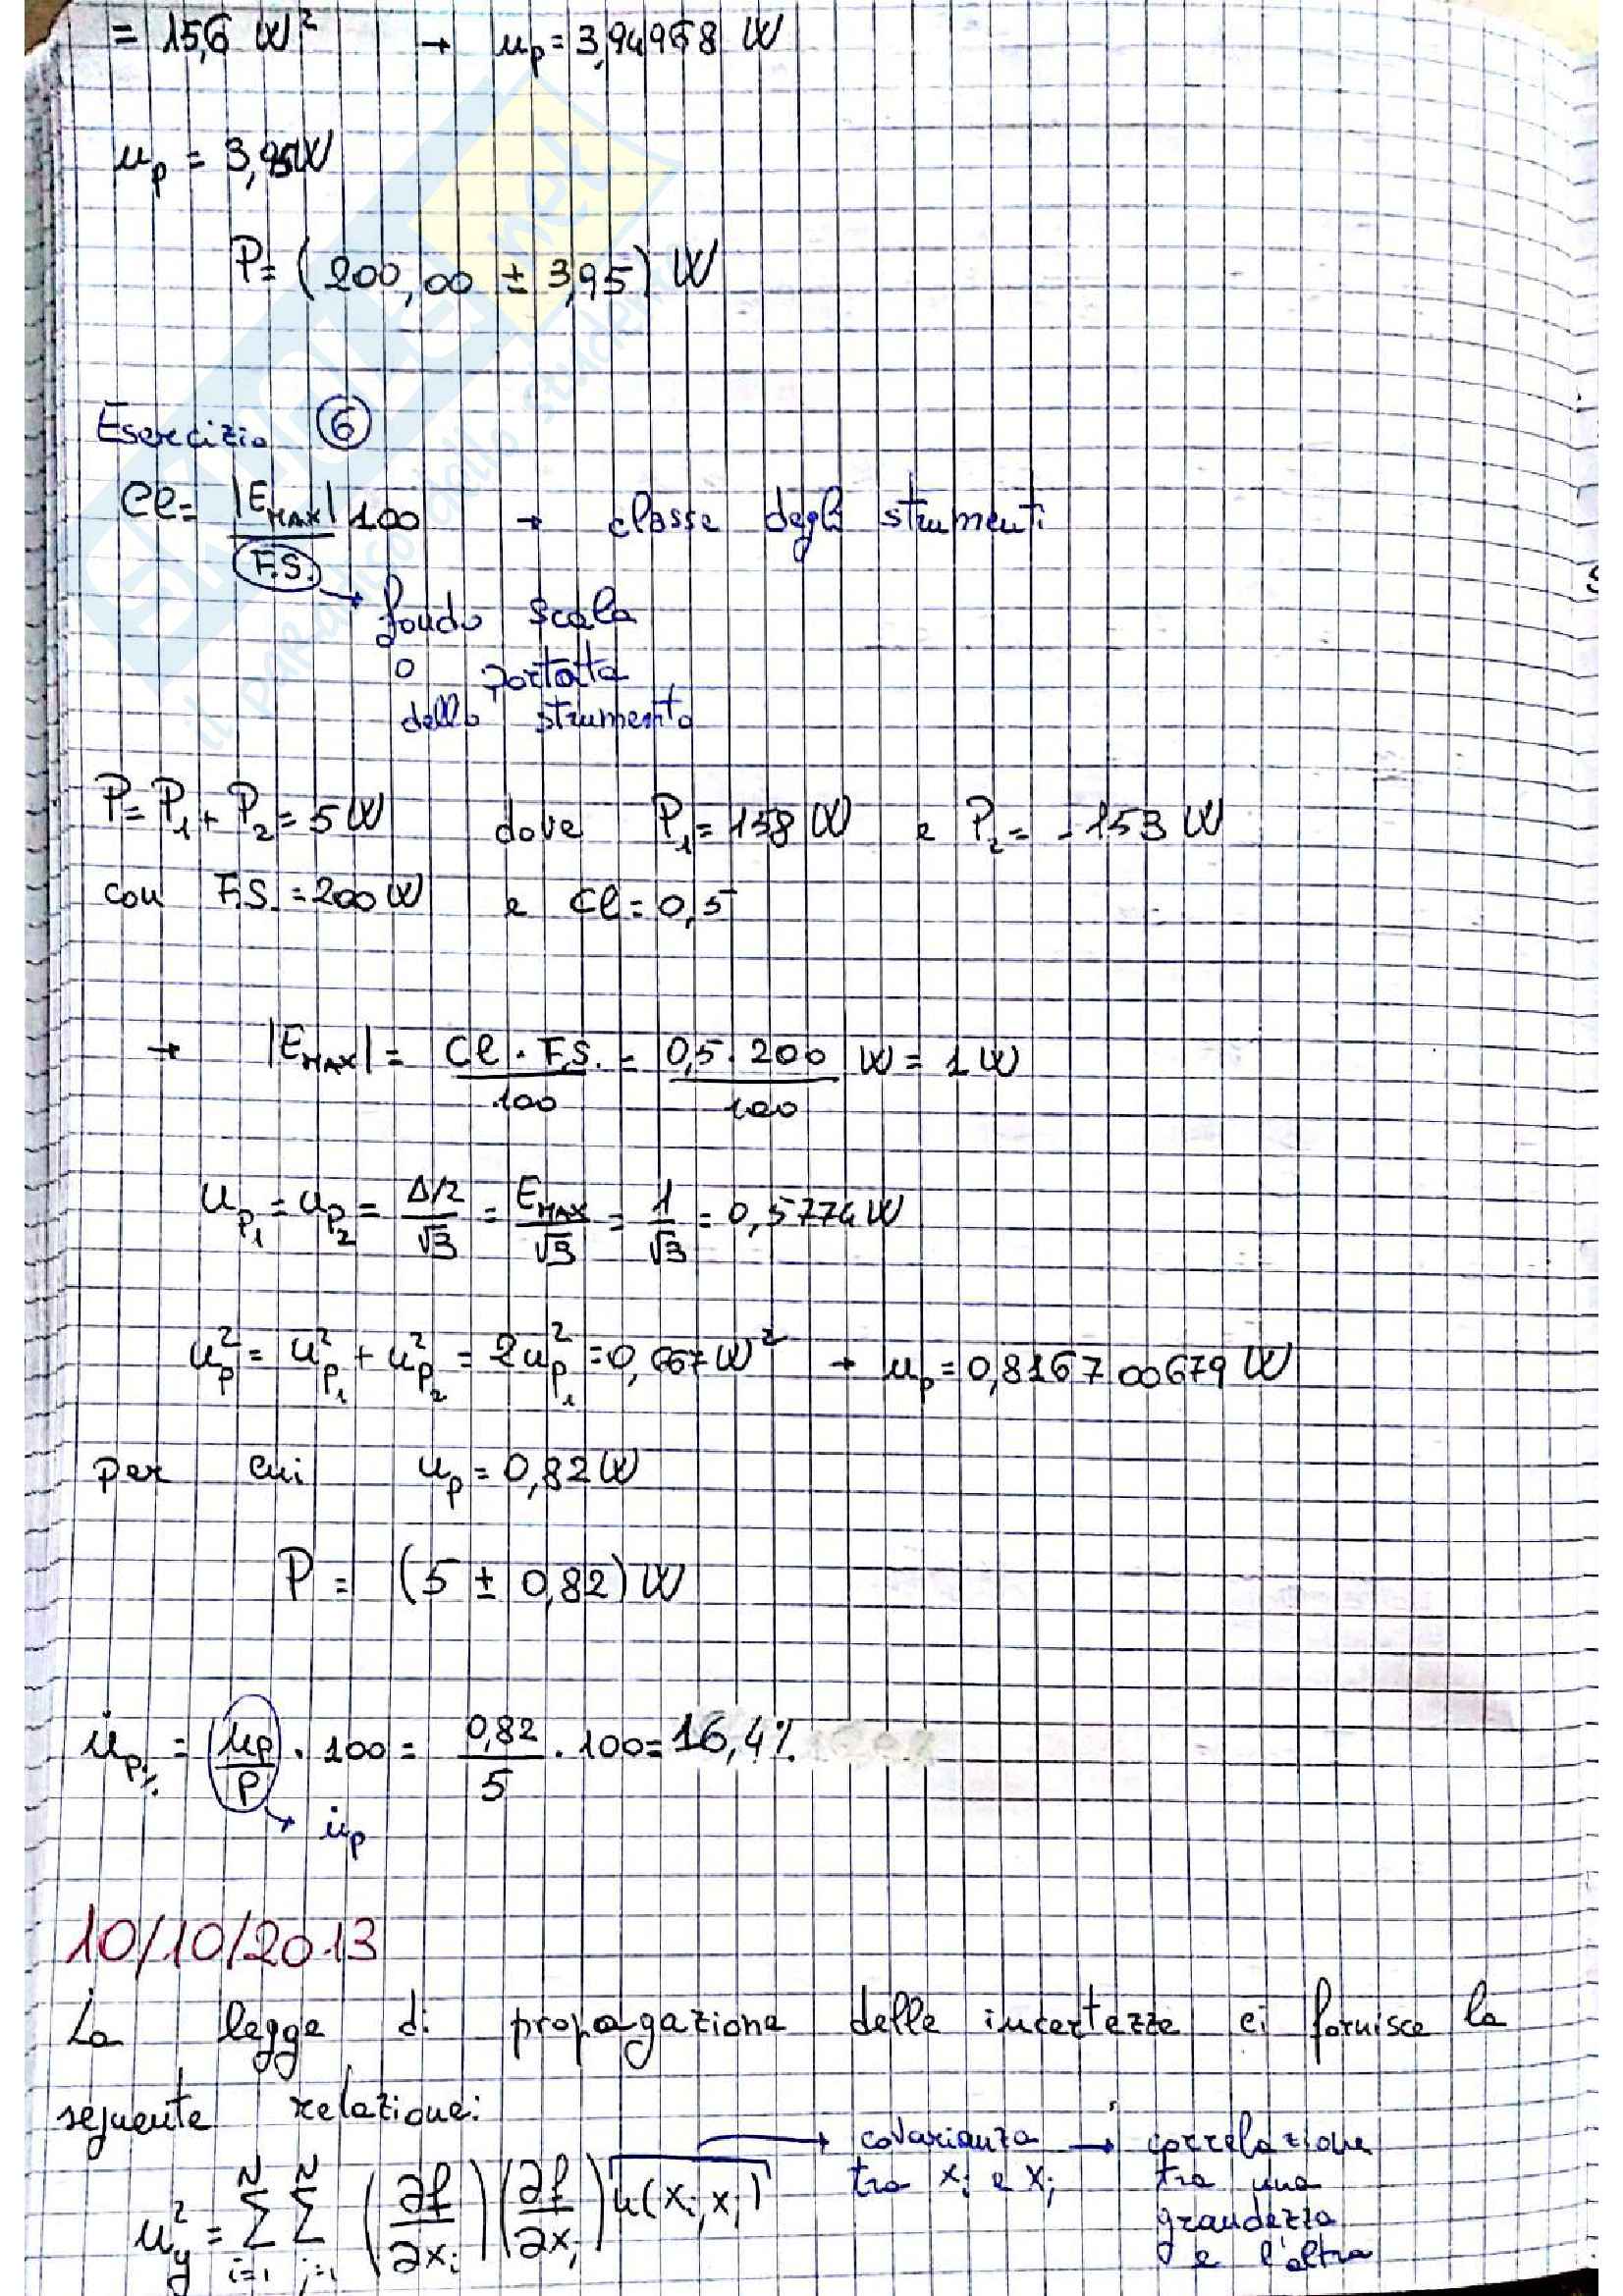 = 15,6 W² → u_p = 3,94968 W
u_p = 3,95 W
P = (200,00 ± 3,95) W
Esercizio 6
Cl = |E_MAX| / F.S. 100 → classe degli strumenti
fondo scala
o portata
dello strumento
P = P₁ + P₂ = 5 W dove P₁ = 158 W e P₂ = -153 W
con F.S. = 200 W e Cl = 0,5
→ |E_MAX| = Cl · F.S. / 100 = 0,5 · 200 / 100 W = 1 W
u_P₁ = u_P₂ = Δ/2 / √3 = E_MAX / √3 = 1 / √3 = 0,5774 W
u_P² = u_P₁² + u_P₂² = 2u_P₁² = 0,667 W² → u_p = 0,816700679 W
per cui u_p = 0,82 W
P = (5 ± 0,82) W
u̇_P% = u_P / P · 100 = 0,82 / 5 · 100 = 16,4%
→ u̇_p
10/10/2013
La legge di propagazione delle incertezze ci fornisce la
seguente relazione:
u_y² = Σ_{i=1}^{N} Σ_{j=1}^{N} (∂f/∂x_i) (∂f/∂x_j) u(x_i, x_j) → covarianza tra x_i e x_j → correlazione tra una grandezza e l'altra